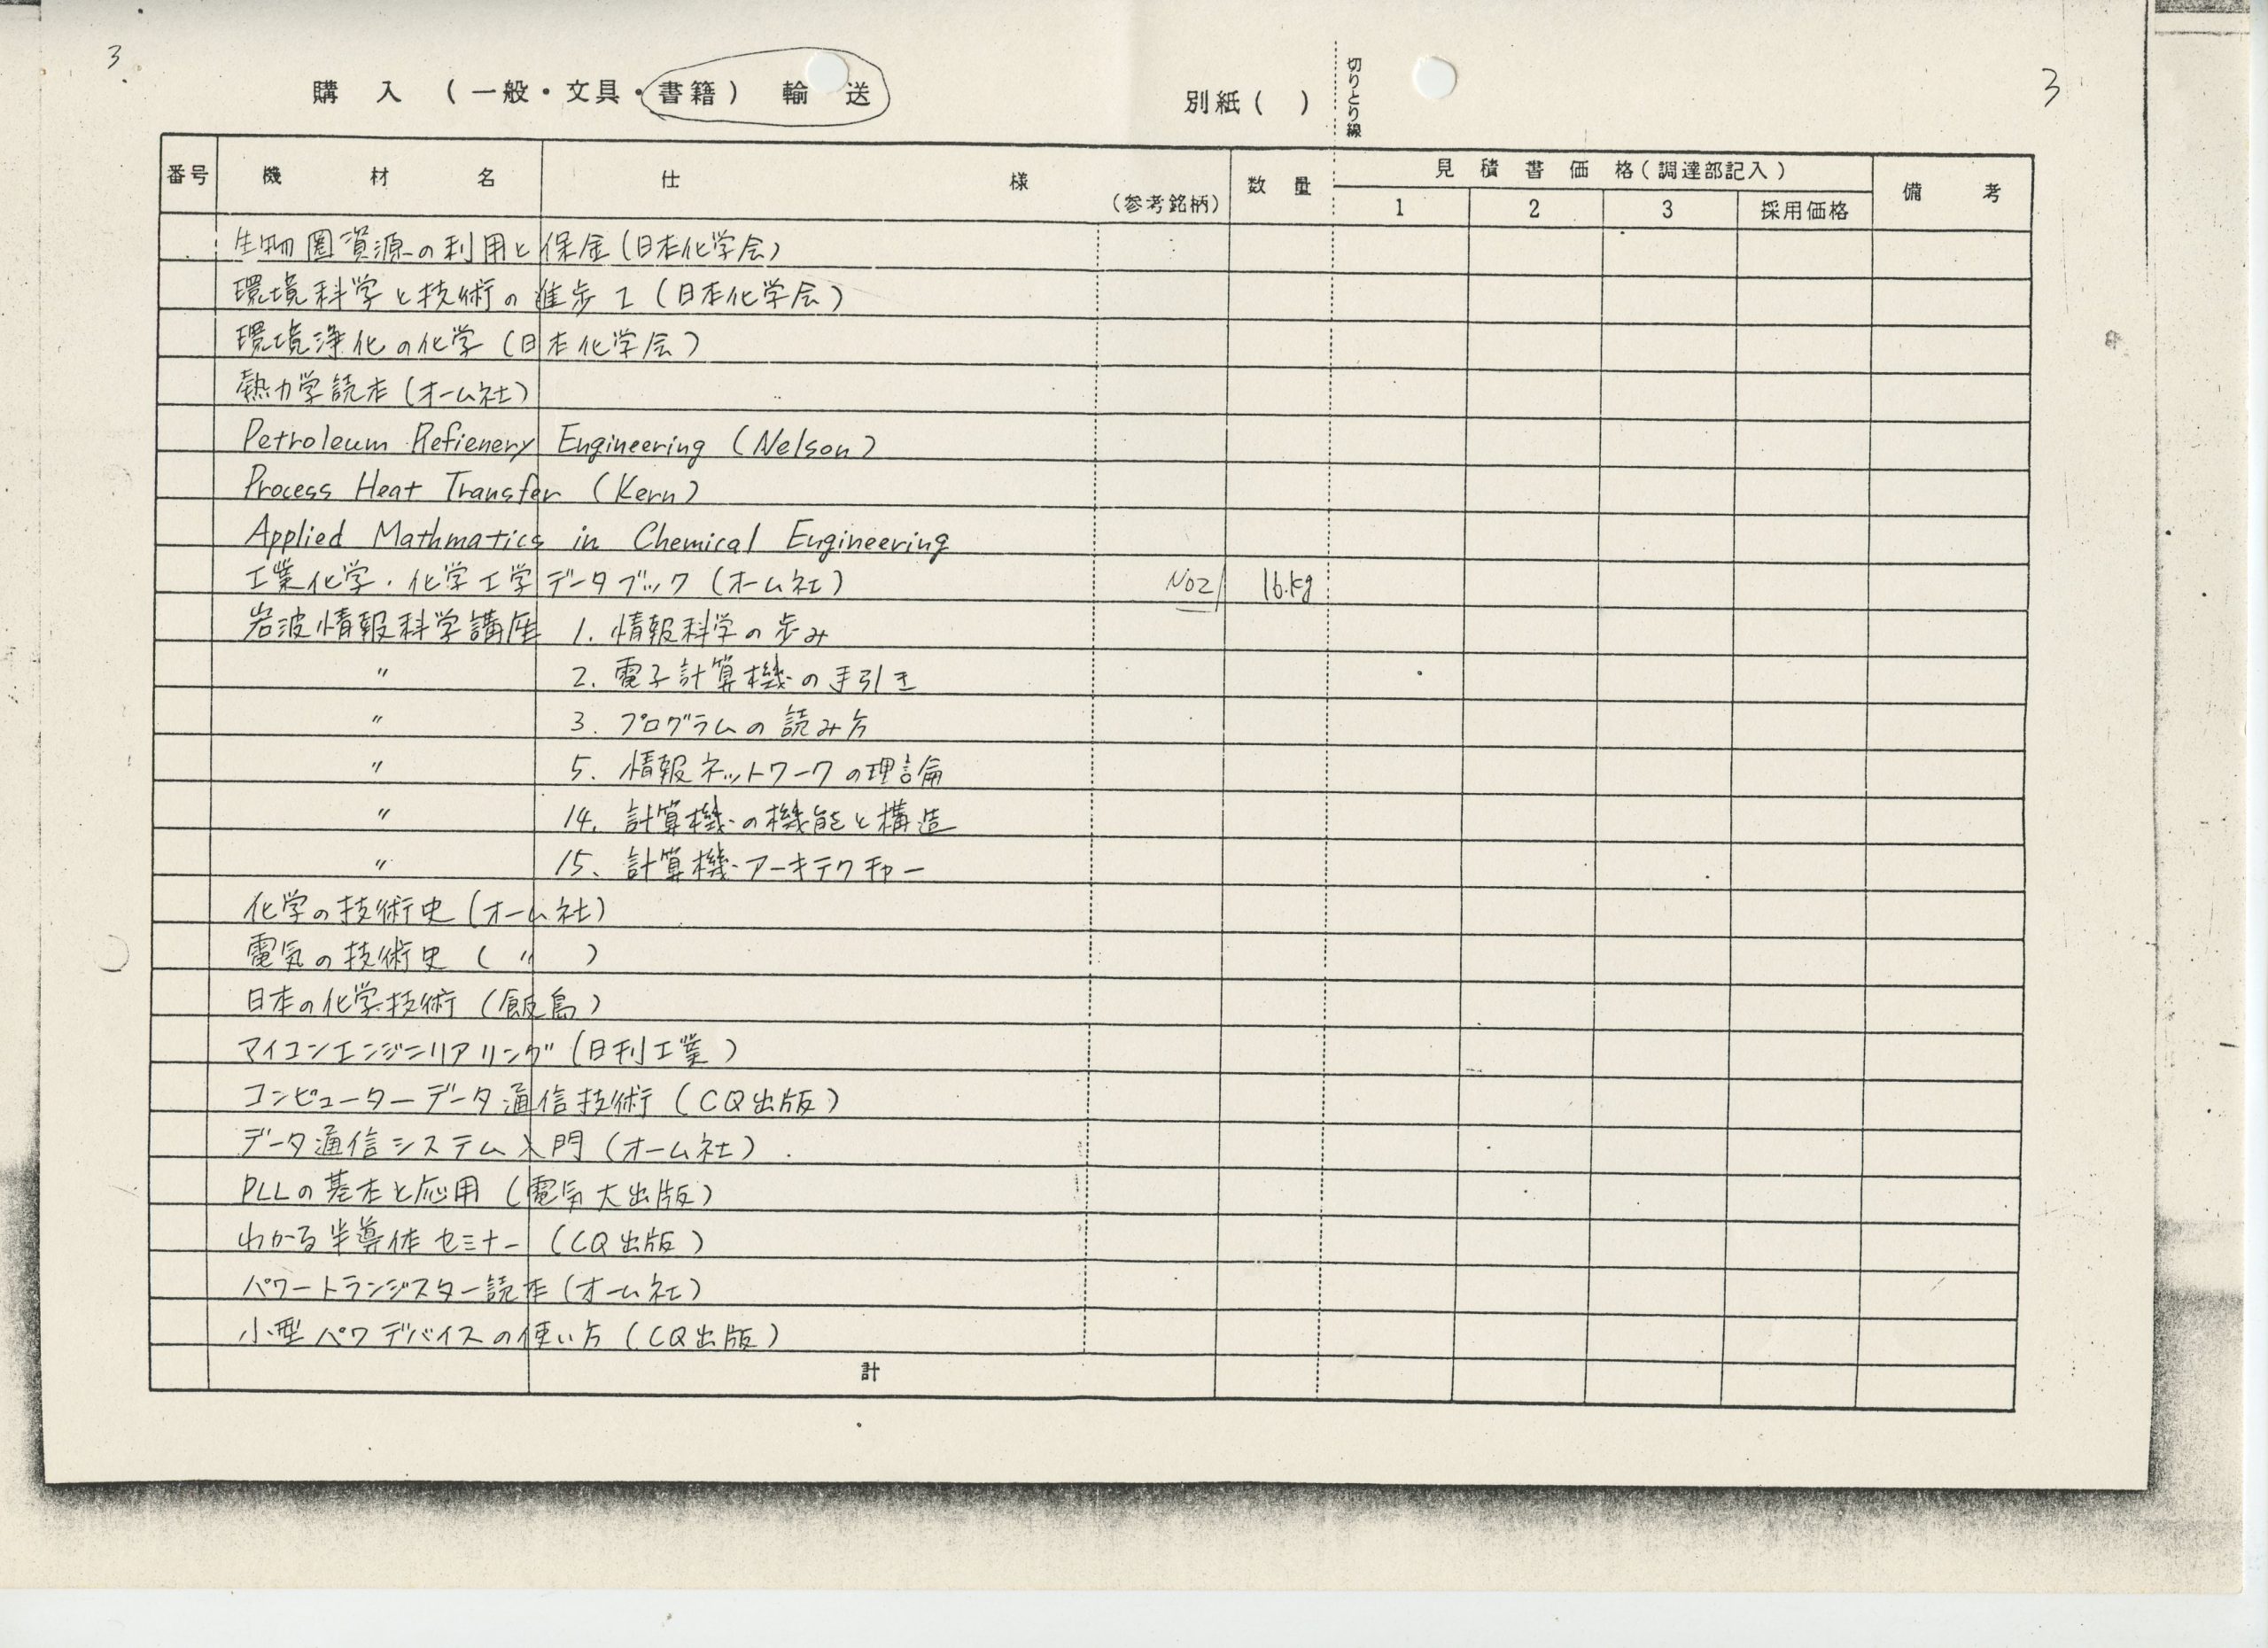 3
3
購入 (一般・文具・書籍) 輸送
別紙( )
切りとり線
番号 機材名 仕様 (参考銘柄) 数量 見積書価格(調達部記入) 備考
1 2 3 採用価格
生物圏資源の利用と保全(日本化学会)
環境科学と技術の進歩 I (日本化学会)
環境浄化の化学 (日本化学会)
熱力学読本 (オーム社)
Petroleum Refienery Engineering (Nelson)
Process Heat Transfer (Kern)
Applied Mathmatics in Chemical Engineering
工業化学・化学工学データブック (オーム社) No2 16.kg
岩波情報科学講座 1. 情報科学の歩み
〃 2. 電子計算機の手引き
〃 3. プログラムの読み方
〃 5. 情報ネットワークの理論
〃 14. 計算機の機能と構造
〃 15. 計算機アーキテクチャー
化学の技術史 (オーム社)
電気の技術史 ( 〃 )
日本の化学技術 (飯島)
マイコンエンジニリアリング (日刊工業)
コンピューターデータ通信技術 (CQ出版)
データ通信システム入門 (オーム社)
PLLの基本と応用 (電気大出版)
わかる半導体セミナー (CQ出版)
パワートランジスター読本 (オーム社)
小型パワデバイスの使い方 (CQ出版)
計